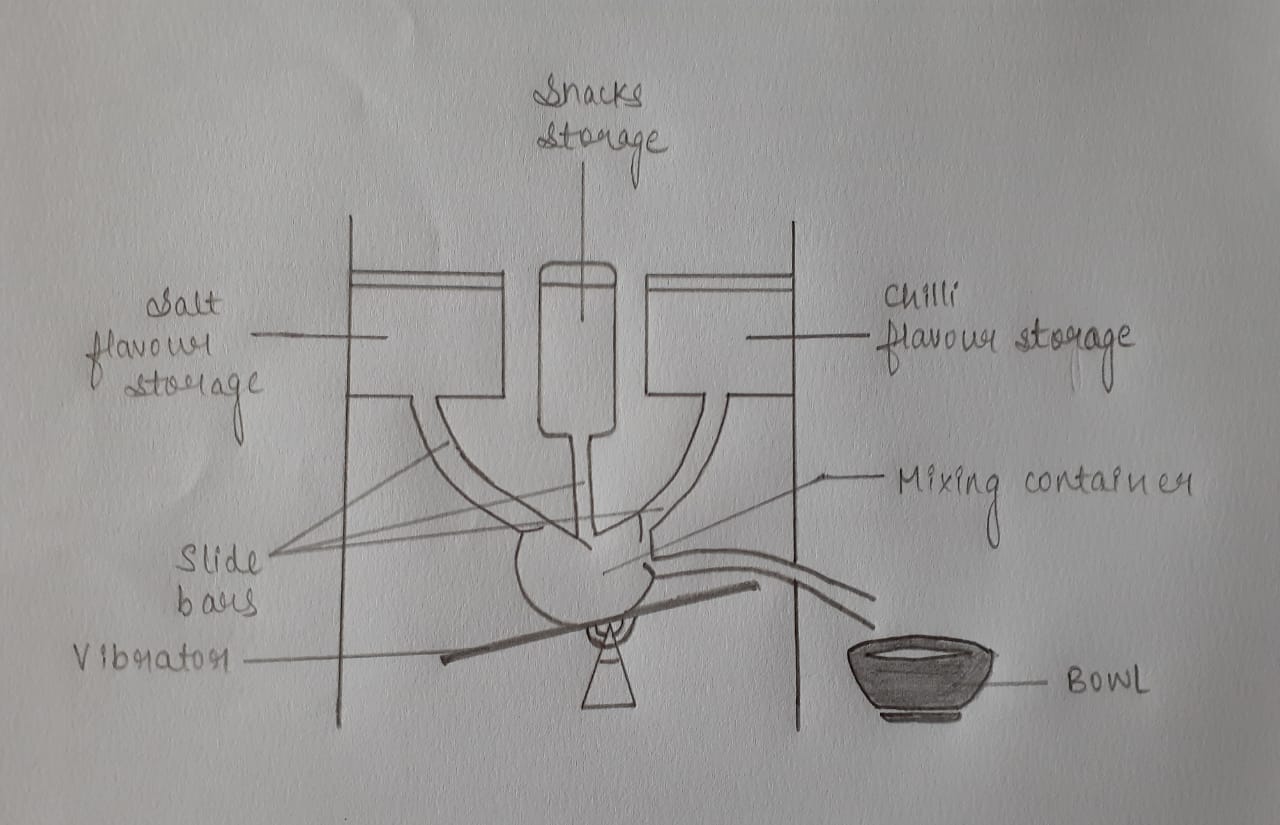 Snacks
storage
Salt
flavour
storage
Chilli
flavour storage
Mixing container
Slide
bars
Vibrator
BOWL